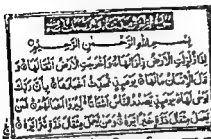 بِسْمِ اللهِ الرَّحْمٰنِ الرَّحِيْمِ
اِذَا زُلْزِلَتِ الْاَرْضُ زِلْزَالَهَا وَاَخْرَجَتِ الْاَرْضُ اَثْقَالَهَا وَ
قَالَ الْاِنْسَانُ مَا لَهَا يَوْمَئِذٍ تُحَدِّثُ اَخْبَارَهَا بِاَنَّ رَبَّكَ
اَوْحٰى لَهَا يَوْمَئِذٍ يَّصْدُرُ النَّاسُ اَشْتَاتًا لِّيُرَوْا اَعْمَالَهُمْ فَمَنْ
يَّعْمَلْ مِثْقَالَ ذَرَّةٍ خَيْرًا يَّرَهٗ وَمَنْ يَّعْمَلْ مِثْقَالَ ذَرَّةٍ شَرًّا يَّرَهٗ